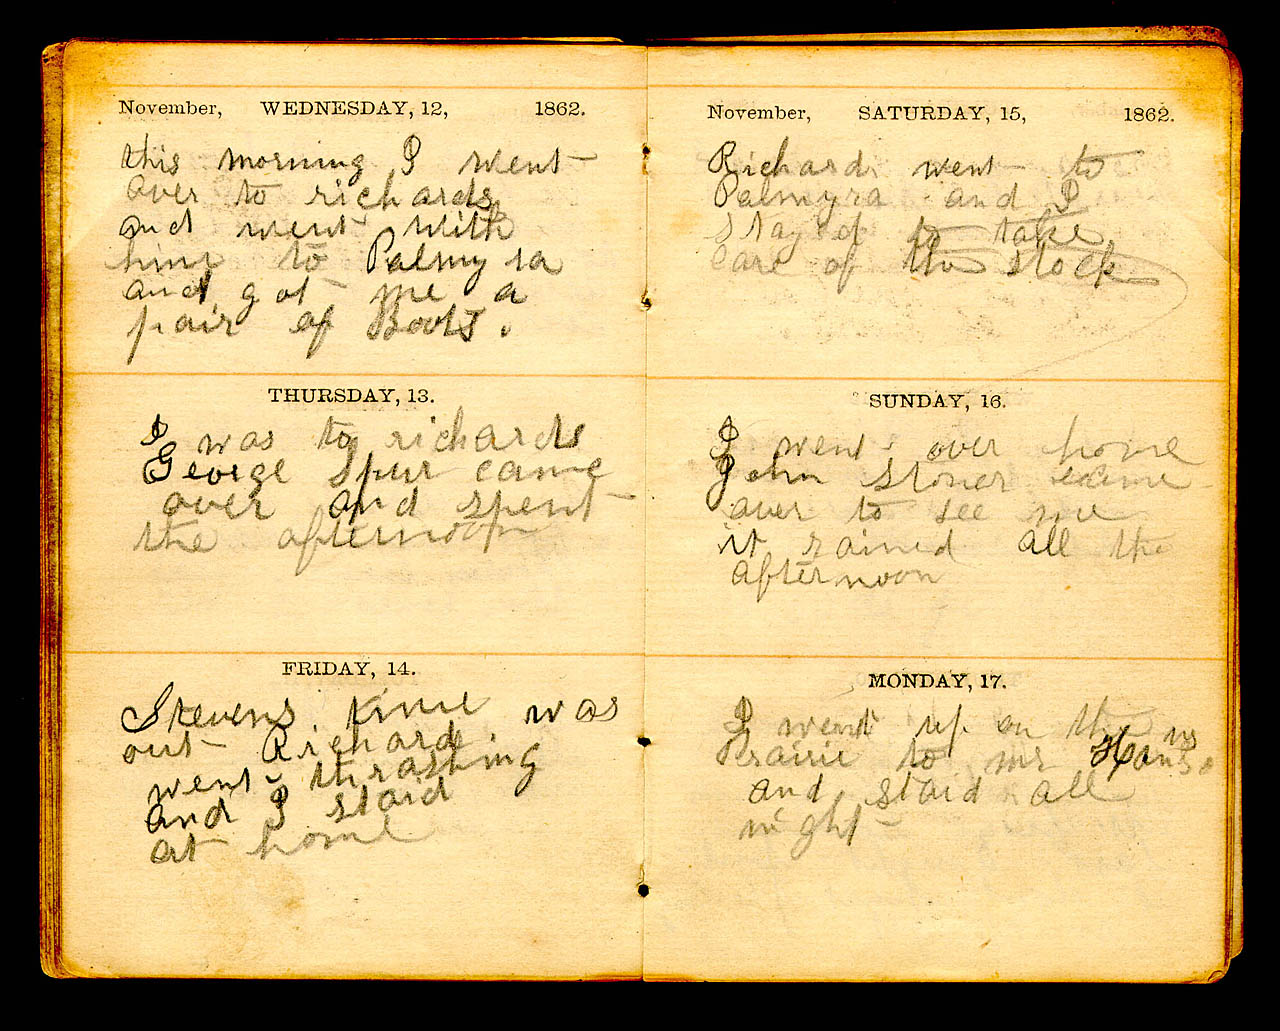 November, WEDNESDAY, 12, 1862.
this morning I went
over to richards
and went with
him to Palmyra
and got me a
pair of Boots.
THURSDAY, 13.
I was to richards
George Spur came
over and spent
the afternoon
FRIDAY, 14.
Stevens time was
out Richard
went thrashing
and I staid
at home
November, SATURDAY, 15, 1862.
Richard went to
Palmyra and I
stayed to take
care of the stock
SUNDAY, 16.
I went over home
John stoner came
over to see me
it rained all the
afternoon
MONDAY, 17.
I went up on the
Prairie to mr
and staid all
night